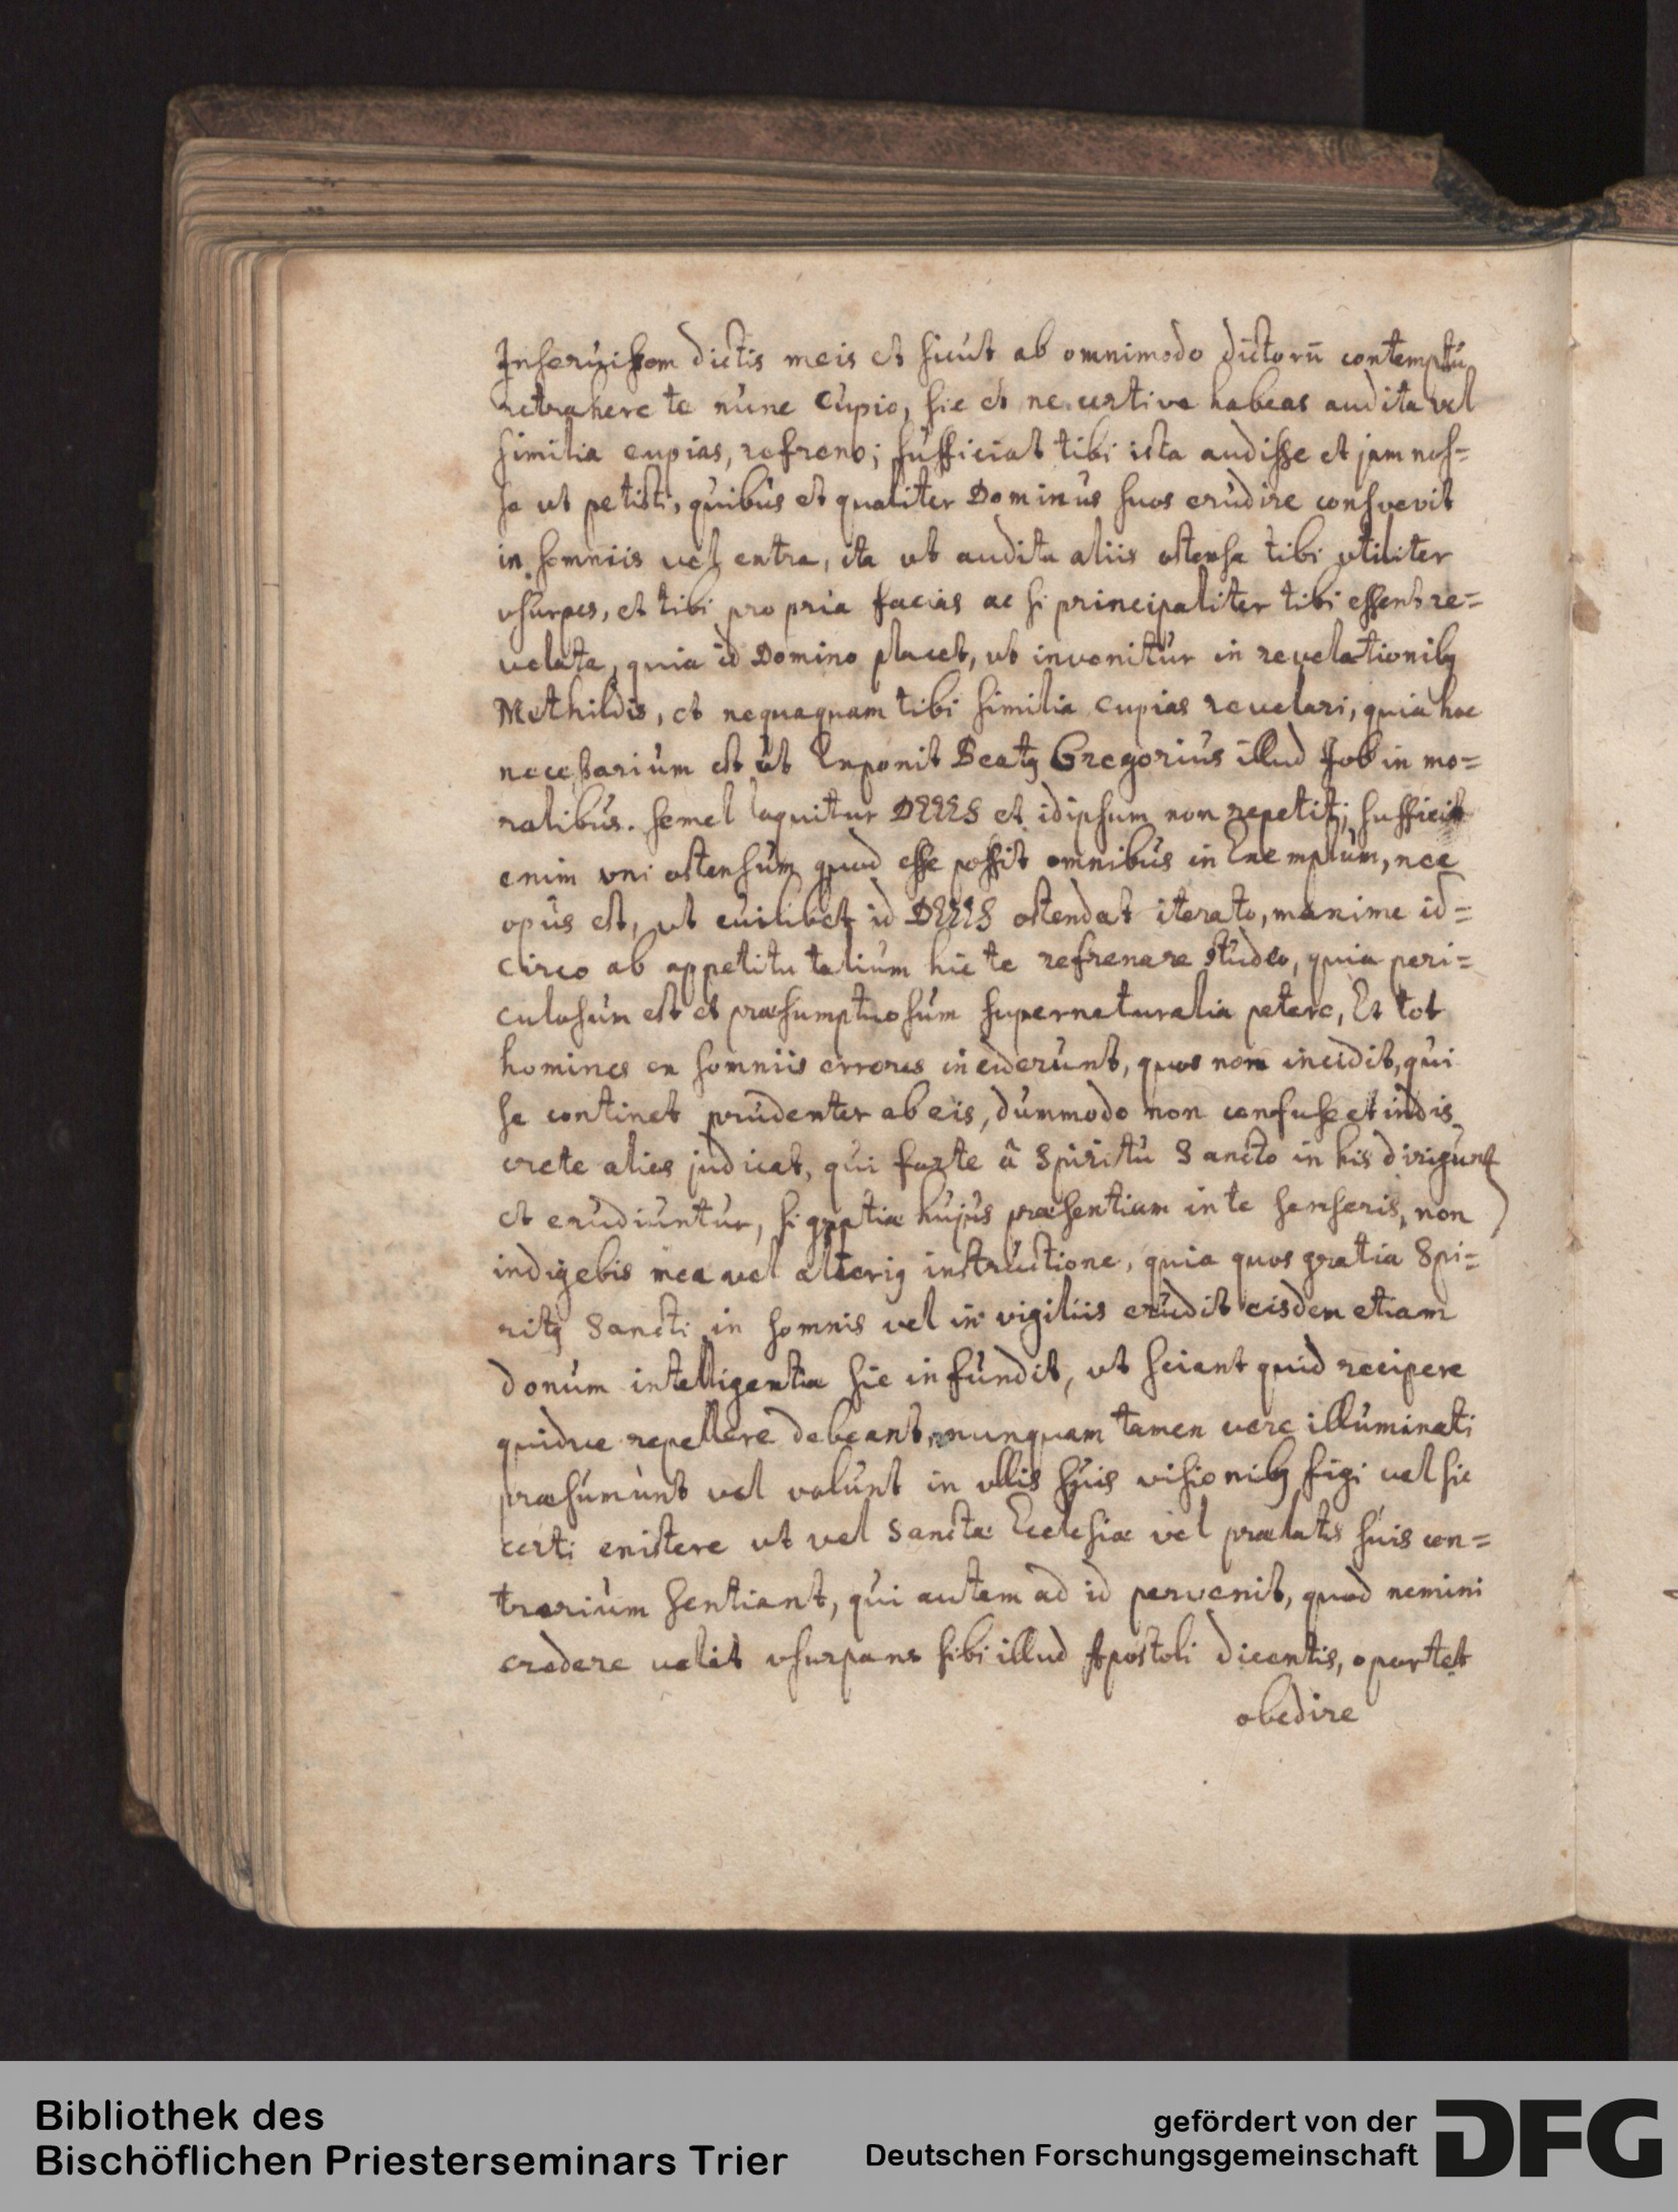 Inseruissem dictis meis et sicut ab omnimodo dictorū contemptu
retrahere te nunc Cupio, sic et ne certive habeas audita vel
similia cupias, refreno; sufficiat tibi ista audisse et jam nos=
se ut petisti, quibus et qualiter Dominus suos erudire consvevit
in somniis vel extra, ita ut audita aliis ostensa tibi utiliter
usurpes, et tibi propria facias ac si principaliter tibi essent re=
velata, quia id Domino placet, ut invenitur in revelationibq
Methildis, et nequaquam tibi similia cupias revelari, quia hoc
necessarium est ut Exponit Beatq Gregorius illud Job in mo=
ralibus. semel loquitur DEUS et idipsum non repetit; sufficit
enim uni ostensum quod esse possit omnibus in Exemplum, nec
opus est, ut cuilibet id DEUS ostendat iterato, maxime id=
circo ab appetitu talium hic te refrenare studeo, quia peri=
culosum est et præsumptuosum supernaturalia petere, Et tot
homines ex somniis errores inciderunt, quos non incidit, qui
se continet prudenter ab eis, dummodo non confuse et indis
crete alios judicat, qui forte â Spiritu Sancto in his dirigunt
et erudiuntur, si gratiæ hujus præsentiam in te senseris, non
indigebis mea vel alteriq instructione, quia quos gratia Spi=
ritq Sancti in somnis vel in vigiliis erudit eisdem etiam
donum intelligentiæ sic infundit, ut sciant quid recipere
quidve repellere debeant, nunquam tamen vere illuminati
præsumunt vel volunt in ullis suis visionibq figi vel sic
certi existere ut vel Sanctæ Ecclesiæ vel prælatis suis con=
trarium sentiant, qui autem ad id pervenit, quod nemini
credere velit usurpans sibi illud Apostoli dicentis, oportet
obedire
Bibliothek des
Bischöflichen Priesterseminars Trier
gefördert von der
Deutschen Forschungsgemeinschaft
DFG